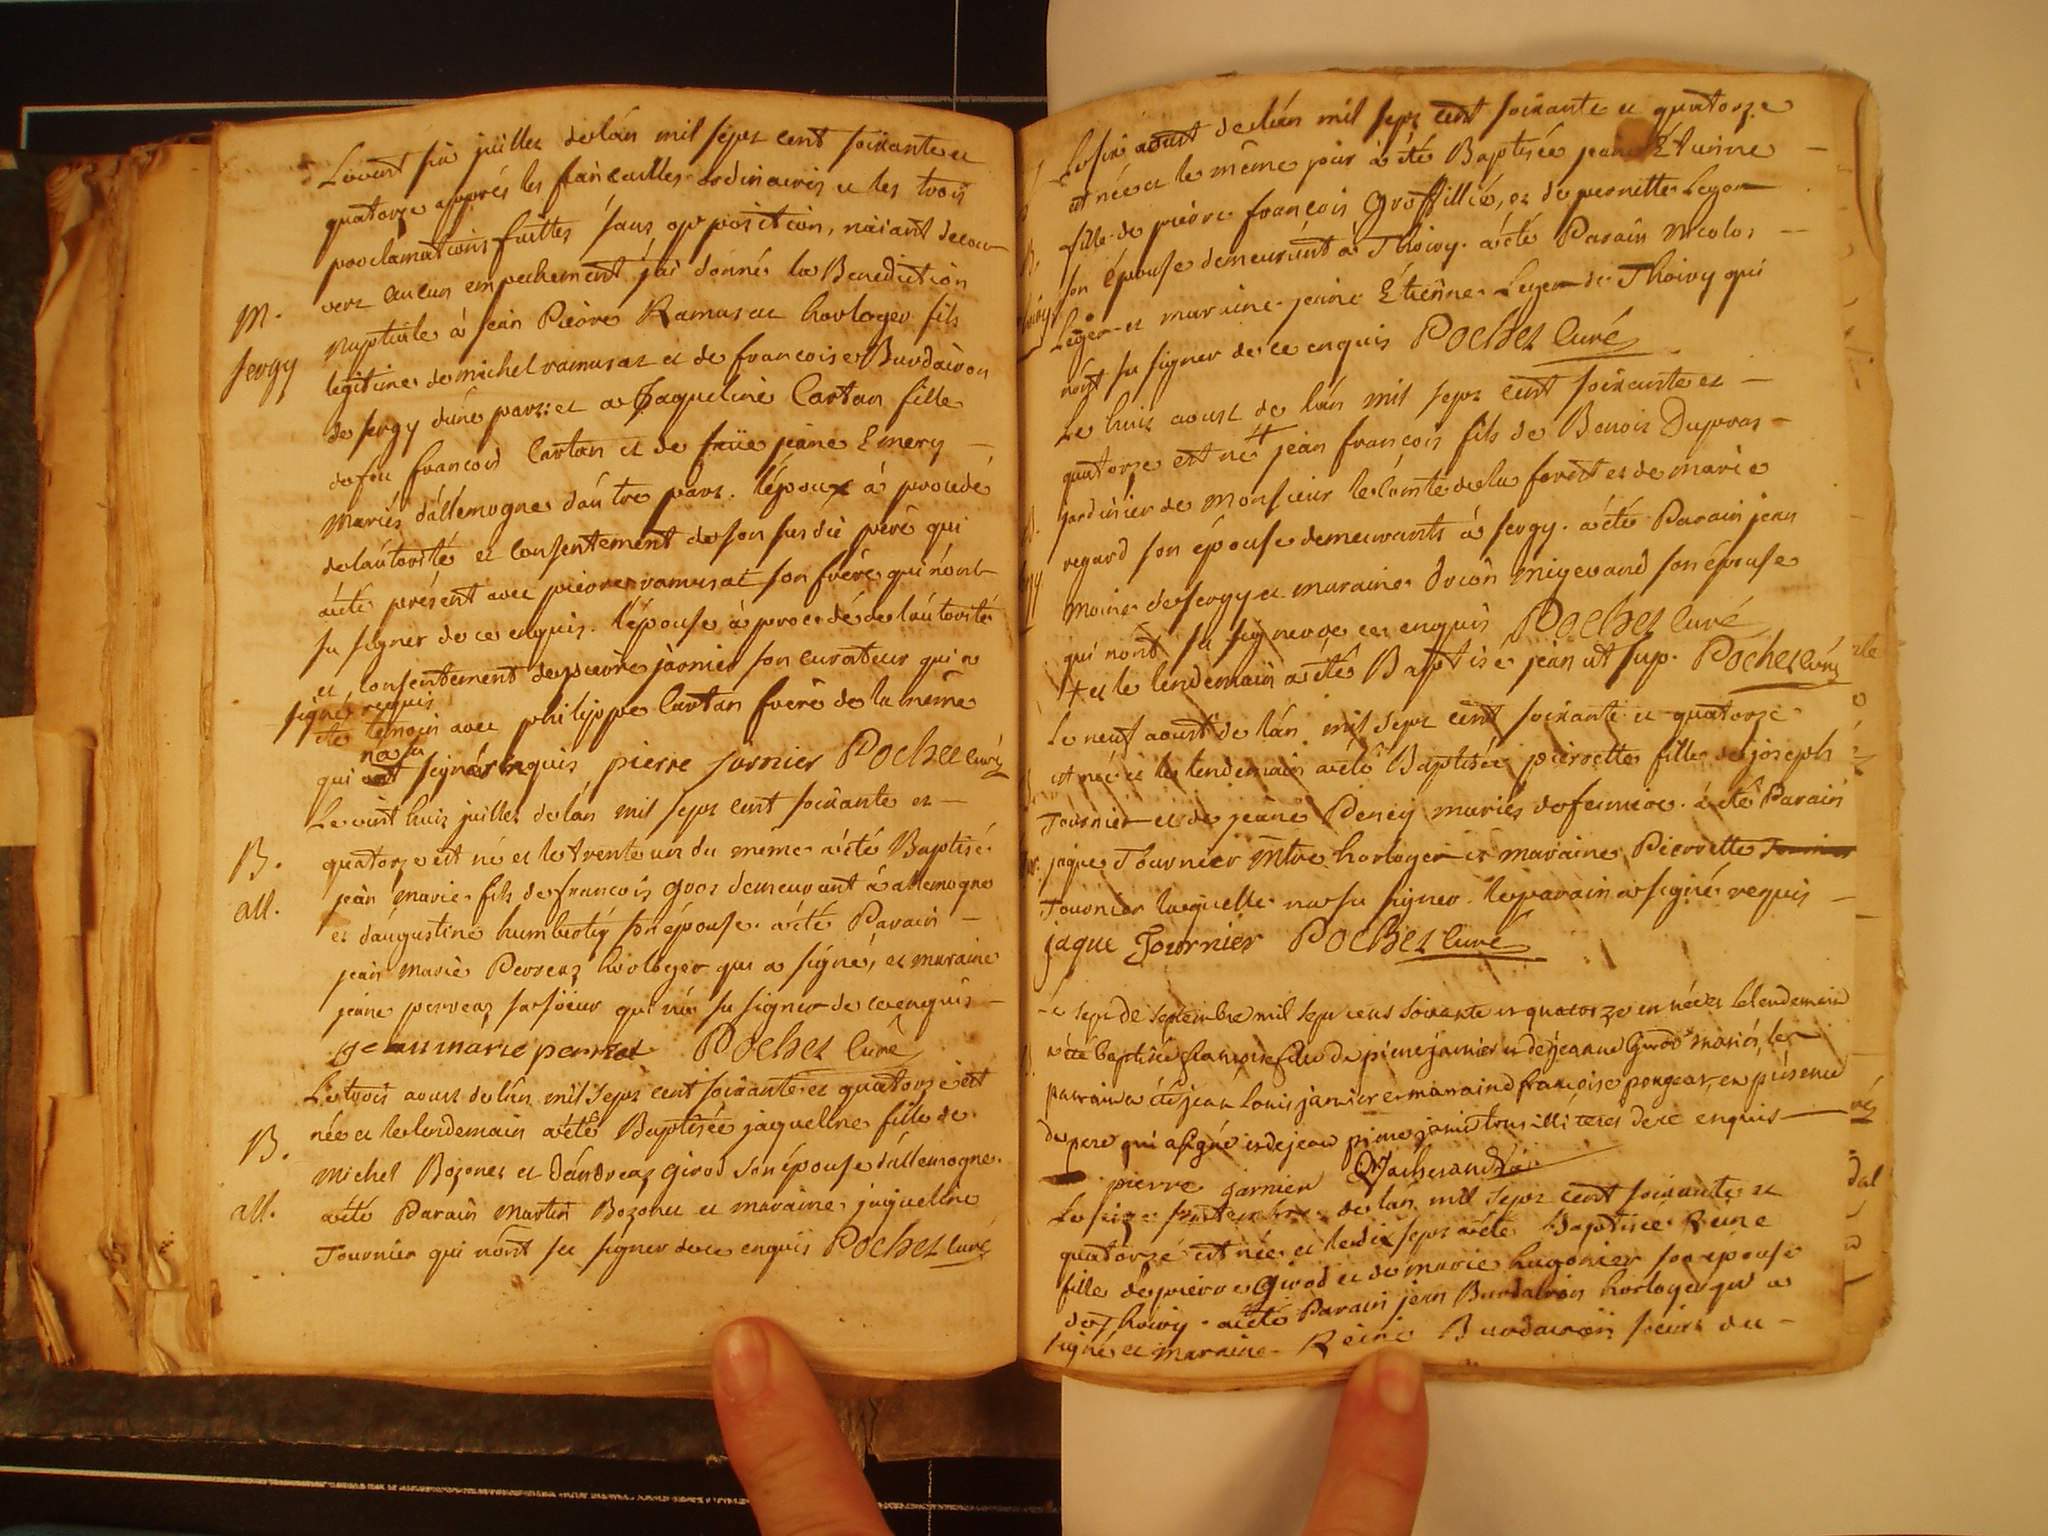 Le vint six juillet de lán mil sept cent soixante et
quatorze apprés les fiançailles ordinaires et les trois
proclamations faittes sans opposition, náiant decou
vert aucun empechement j'ai donné la Benediction
M.
nuptiale à Jean Pierre Ramusat horloger fils
Sergy
legitime de michel ramusat et de francoise Burdairon
de sergy dúne part: et a Jaqueline Cartan fille
de feu francois Cartan et de feüe jeane Emery
mariés dállemogne dáutre part. lépoux à procedé
de láutorité et consentement de son susdit pere qui
áété présent avec pierre ramusat son frére qui nónt
su signer de ce enquis. lépouse à procedé de láutorité
et consentement de pierre jarnier son curateur qui a
signé requis
été temoin avec philippe Cartan frére de la même
na su
qui signér enquis pierre jarnier Pochet curé
Le vint huit juillet de lán mil sept cent soixante et
B.
quatorze est né et le trente un du meme áété Baptisé
all.
jéan marie fils de francois gros demeurant à allemogne
et dáugustine humbert son épouse. áété Parain
jean marie Perreaz horloger qui a signé, et maraine
jeane perreaz sa soeur qui ná su signer de ce enquis
jean marie Pochet Curé
Le trois aout de lán mil sept cent soixante et quatorze est
née et le lendemain áété Baptisée jaqueline fille de
B.
Michel Bozonet et dándreaz girod son épouse dállemogne.
all.
áété Parain Martin Bozonet et maraine jaqueline
Tournier qui nónt su signer de ce enquis Pochet curé
Le six aoust de lán mil sept cent soixante et quatorze
est née et le même jour à été Baptisée jeane Étienne
fille de pierre françois Groffillié, et de pernette Leger
son épouse demeurant à Thoiry. áété Parain Nicolas
Léger et maraine jeane Étienne Leger de Thoiry qui
nónt su signer de ce enquis Pochet Curé
Le huit aoust de lán mil sept cent soixante et
quatorze est né + jean francois fils de Benoit Dupras
jardinier de Monsieur le Comte de la forest et de marie
regard son épouse demeurants à sergy. áété Parain jean
Moine de sergy et maraine migerand son épouse
qui nónt su signer de ce enquis Pochet Curé
+ et le lendemain áété Baptisé jean ut sup. Pochet curé
Le neuf aoust de lán mil sept cent soixante et quatorze
est née et le lendemain áété Baptisée pierrette fille de joseph
Tournier et de jeane Peney mariés de feniere. áété Parain
jaque Tournier Mtre horloger et maraine Pierrette
Tournier laquelle na su signer. le parain a signé requis
jaque Tournier Pochet Curé
sept de septembre mil sept cens soixante et quatorze en née et le lendemain
a été baptisée francoise fille de pierre jarnier et de jeanne Girod mariés, le
parrain a été jean Louis jarnier et marraine francoise pongear, en présence
du pere qui a signé et de jean pierre tous illiteres de ce enquis
pierre jarnier
Le seize septembre de lán mil sept cent soixante et
quatorze est née et le dix sept áété Baptisée Reine
fille de pierre Girod et de marie hugonier son épouse
de Thoiry. áété Parain jean Burdairon horloger qui a
signé et maraine Reine Burdairon soeur du